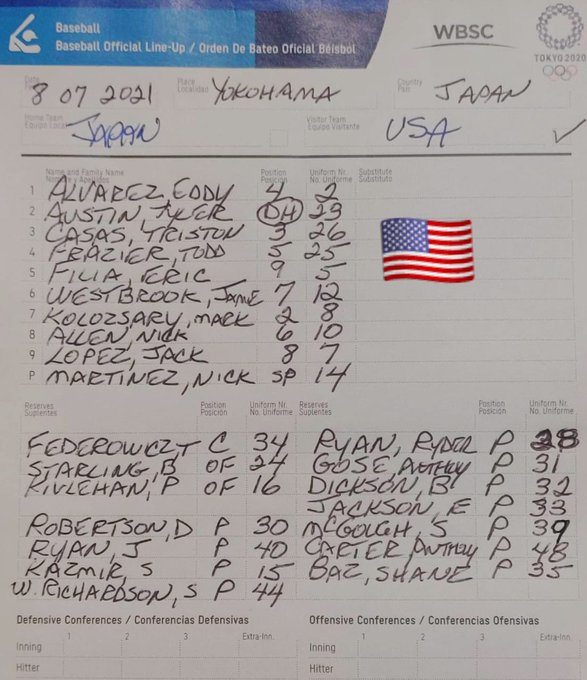 Baseball
Baseball Official Line-Up / Orden De Bateo Oficial Béisbol
WBSC
TOKYO 2020
Date
Place
Localidad
Country
País
8 07 2021 YOKOHAMA JAPAN
Home Team
Equipo Local
Visitor Team
Equipo Visitante
JAPAN USA
Name and Family Name
Nombre y Apellidos
Position
Posición
Uniform Nr.
No. Uniforme
Substitute
Substituto
1 ALVAREZ, EDDY 4 2
2 AUSTIN, TYLER DH 23
3 CASAS, TRISTON 3 26
4 FRAZIER, TODD 5 25
5 FILIA, ERIC 9 5
6 WESTBROOK, JAMIE 7 12
7 KOLOZSARY, MARK 2 8
8 ALLEN, NICK 6 10
9 LOPEZ, JACK 8 7
P MARTINEZ, NICK SP 14
Reserves
Suplentes
Position
Posición
Uniform Nr.
No. Uniforme
Reserves
Suplentes
Position
Posición
Uniform Nr.
No. Uniforme
FEDEROWICZ, T C 34 RYAN, RYDER P 28
STARLING, B OF 24 GOSE, ANTHONY P 31
KIVLEHAN, P OF 16 DICKSON, B P 32
JACKSON, E P 33
ROBERTSON, D P 30 MCGOUGH, S P 39
RYAN, J P 40 CARTER, ANTHONY P 48
KAZMIR, S P 15 BAZ, SHANE P 35
W. RICHARDSON, S P 44
Defensive Conferences / Conferencias Defensivas
Offensive Conferences / Conferencias Ofensivas
1 2 3 Extra-Inn. 1 2 3 Extra-Inn.
Inning Inning
Hitter Hitter